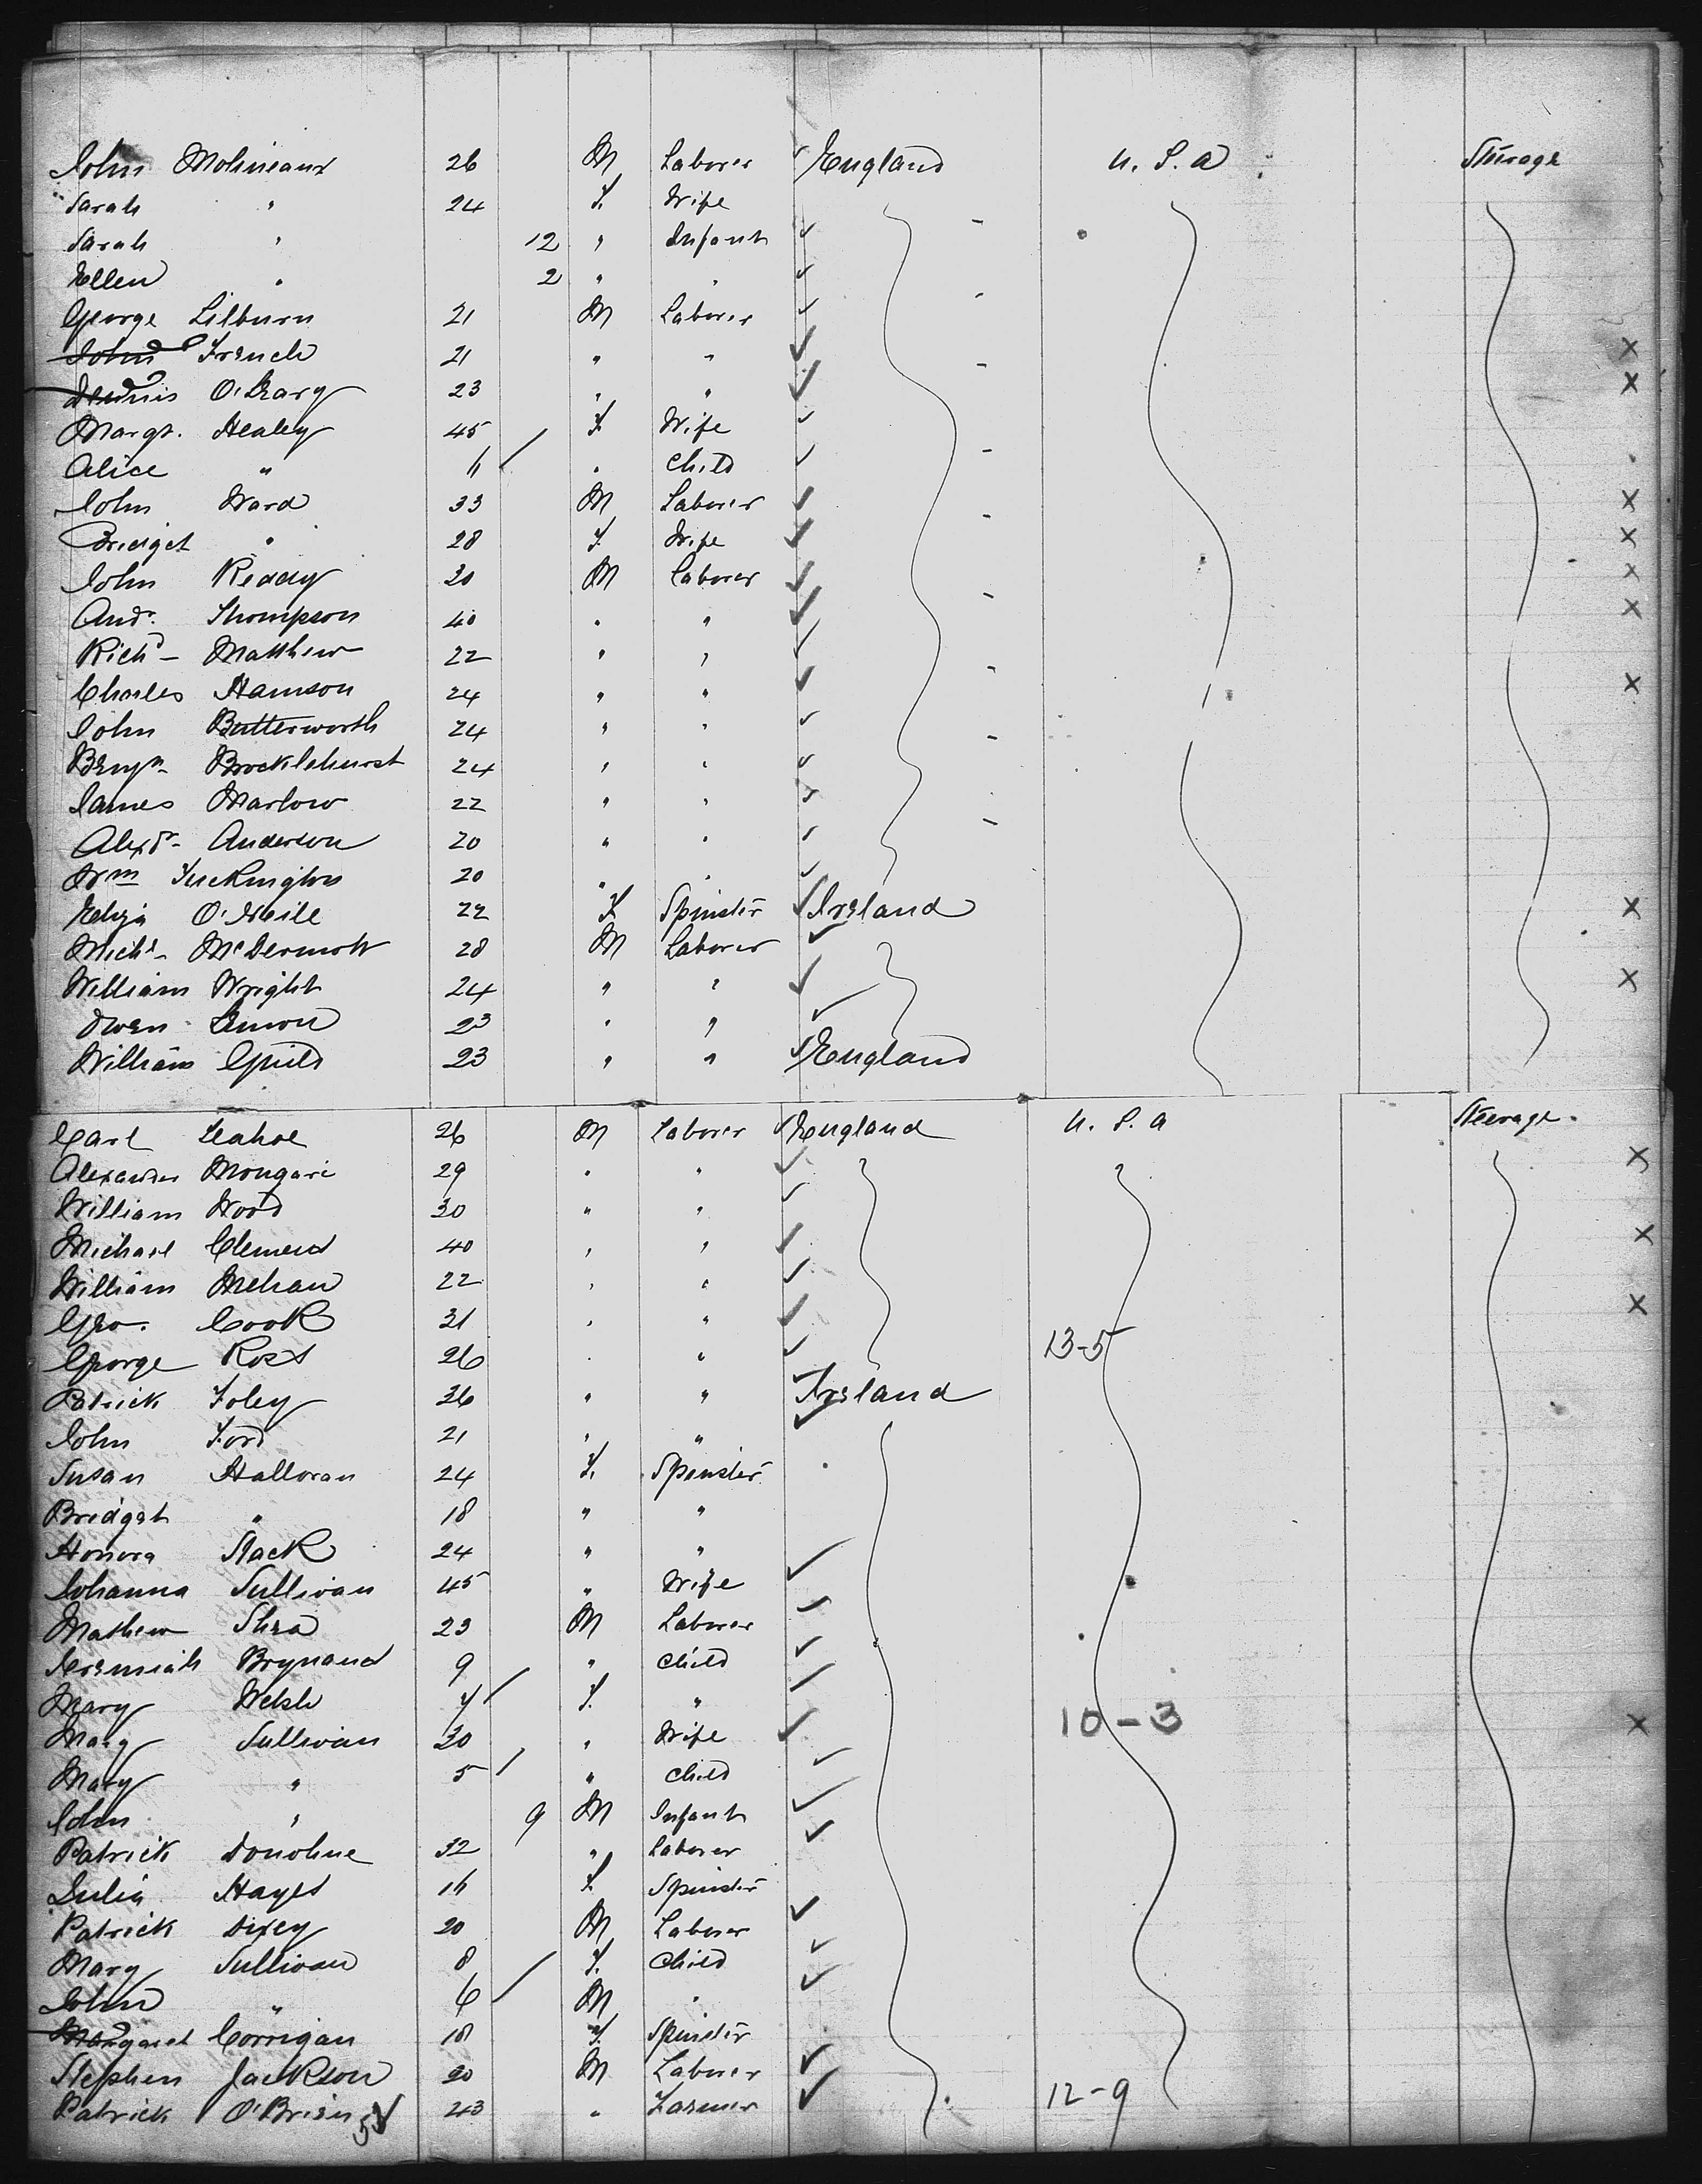 John Molineaux 26 M Laborer ✓ England U. S. A Steerage
Sarah " 24 F. Wife
Sarah " 12 " Infant ✓
Ellen " 2 " " ✓
George Lilburn 21 M Laborer ✓
John French 21 " " ✓ ×
Dennis O'Leary 23 " " ✓ ×
Margt. Healey 45 F. Wife ✓
Alice " 11 " Child ✓
John Ward 33 M Laborer ✓ ×
Bridget " 28 F. Wife ✓ ×
John Reddy 30 M Laborer ✓ ×
Andw. Thompson 40 " " ✓ ×
Richd Matthew 22 " " ✓
Charles 24 " " ✓ ×
John Butterworth 24 " " ✓
Benjn Brocklehurst 24 " " ✓
James Marlow 22 " " ✓
Alexdr Anderson 20 " " ✓
Wm 20 " " ✓
Eliza O'Neile 22 F Spinster ✓ Ireland ×
Michl McDermott 28 M Laborer ✓
William Wright 24 " " ✓ ×
Owen 23 " " ✓
William Guild 23 " " ✓ England
Carl Leahoe 26 M Laborer ✓ England U. S. A Steerage.
Alexander 29 " " ✓ ×
William Wood 30 " " ✓
Michael Clemend 40 " " ✓ ×
William Mehan 22 " " ✓
Geo. Cook 31 " " ✓ ×
George Ross 26 " " ✓ 13-5
Patrick Foley 36 " " ✓ Ireland
John Ford 21 " " ✓
Susan Halloran 24 F. Spinster
Bridget " 18 " "
Honora Stack 24 " "
Johanna Sullivan 45 " Wife ✓
Mathew Shea 23 M Laborer ✓
Jeremiah 9 " Child ✓
Mary Welsh 7 F. " ✓
Mary Sullivan 30 " Wife ✓ 10-3 ×
Mary " 5 " Child ✓
John " 9 M Infant ✓
Patrick Donohue 32 " Laborer ✓
Julia Hayes 16 F Spinster
Patrick 20 M Laborer ✓
Mary Sullivan 8 F. Child ✓
John " 6 M " ✓
Margaret Corrigan 18 F. Spinster
Stephen Jackson 20 M Laborer ✓
Patrick O'Brien 23 " Farmer ✓ 12-9